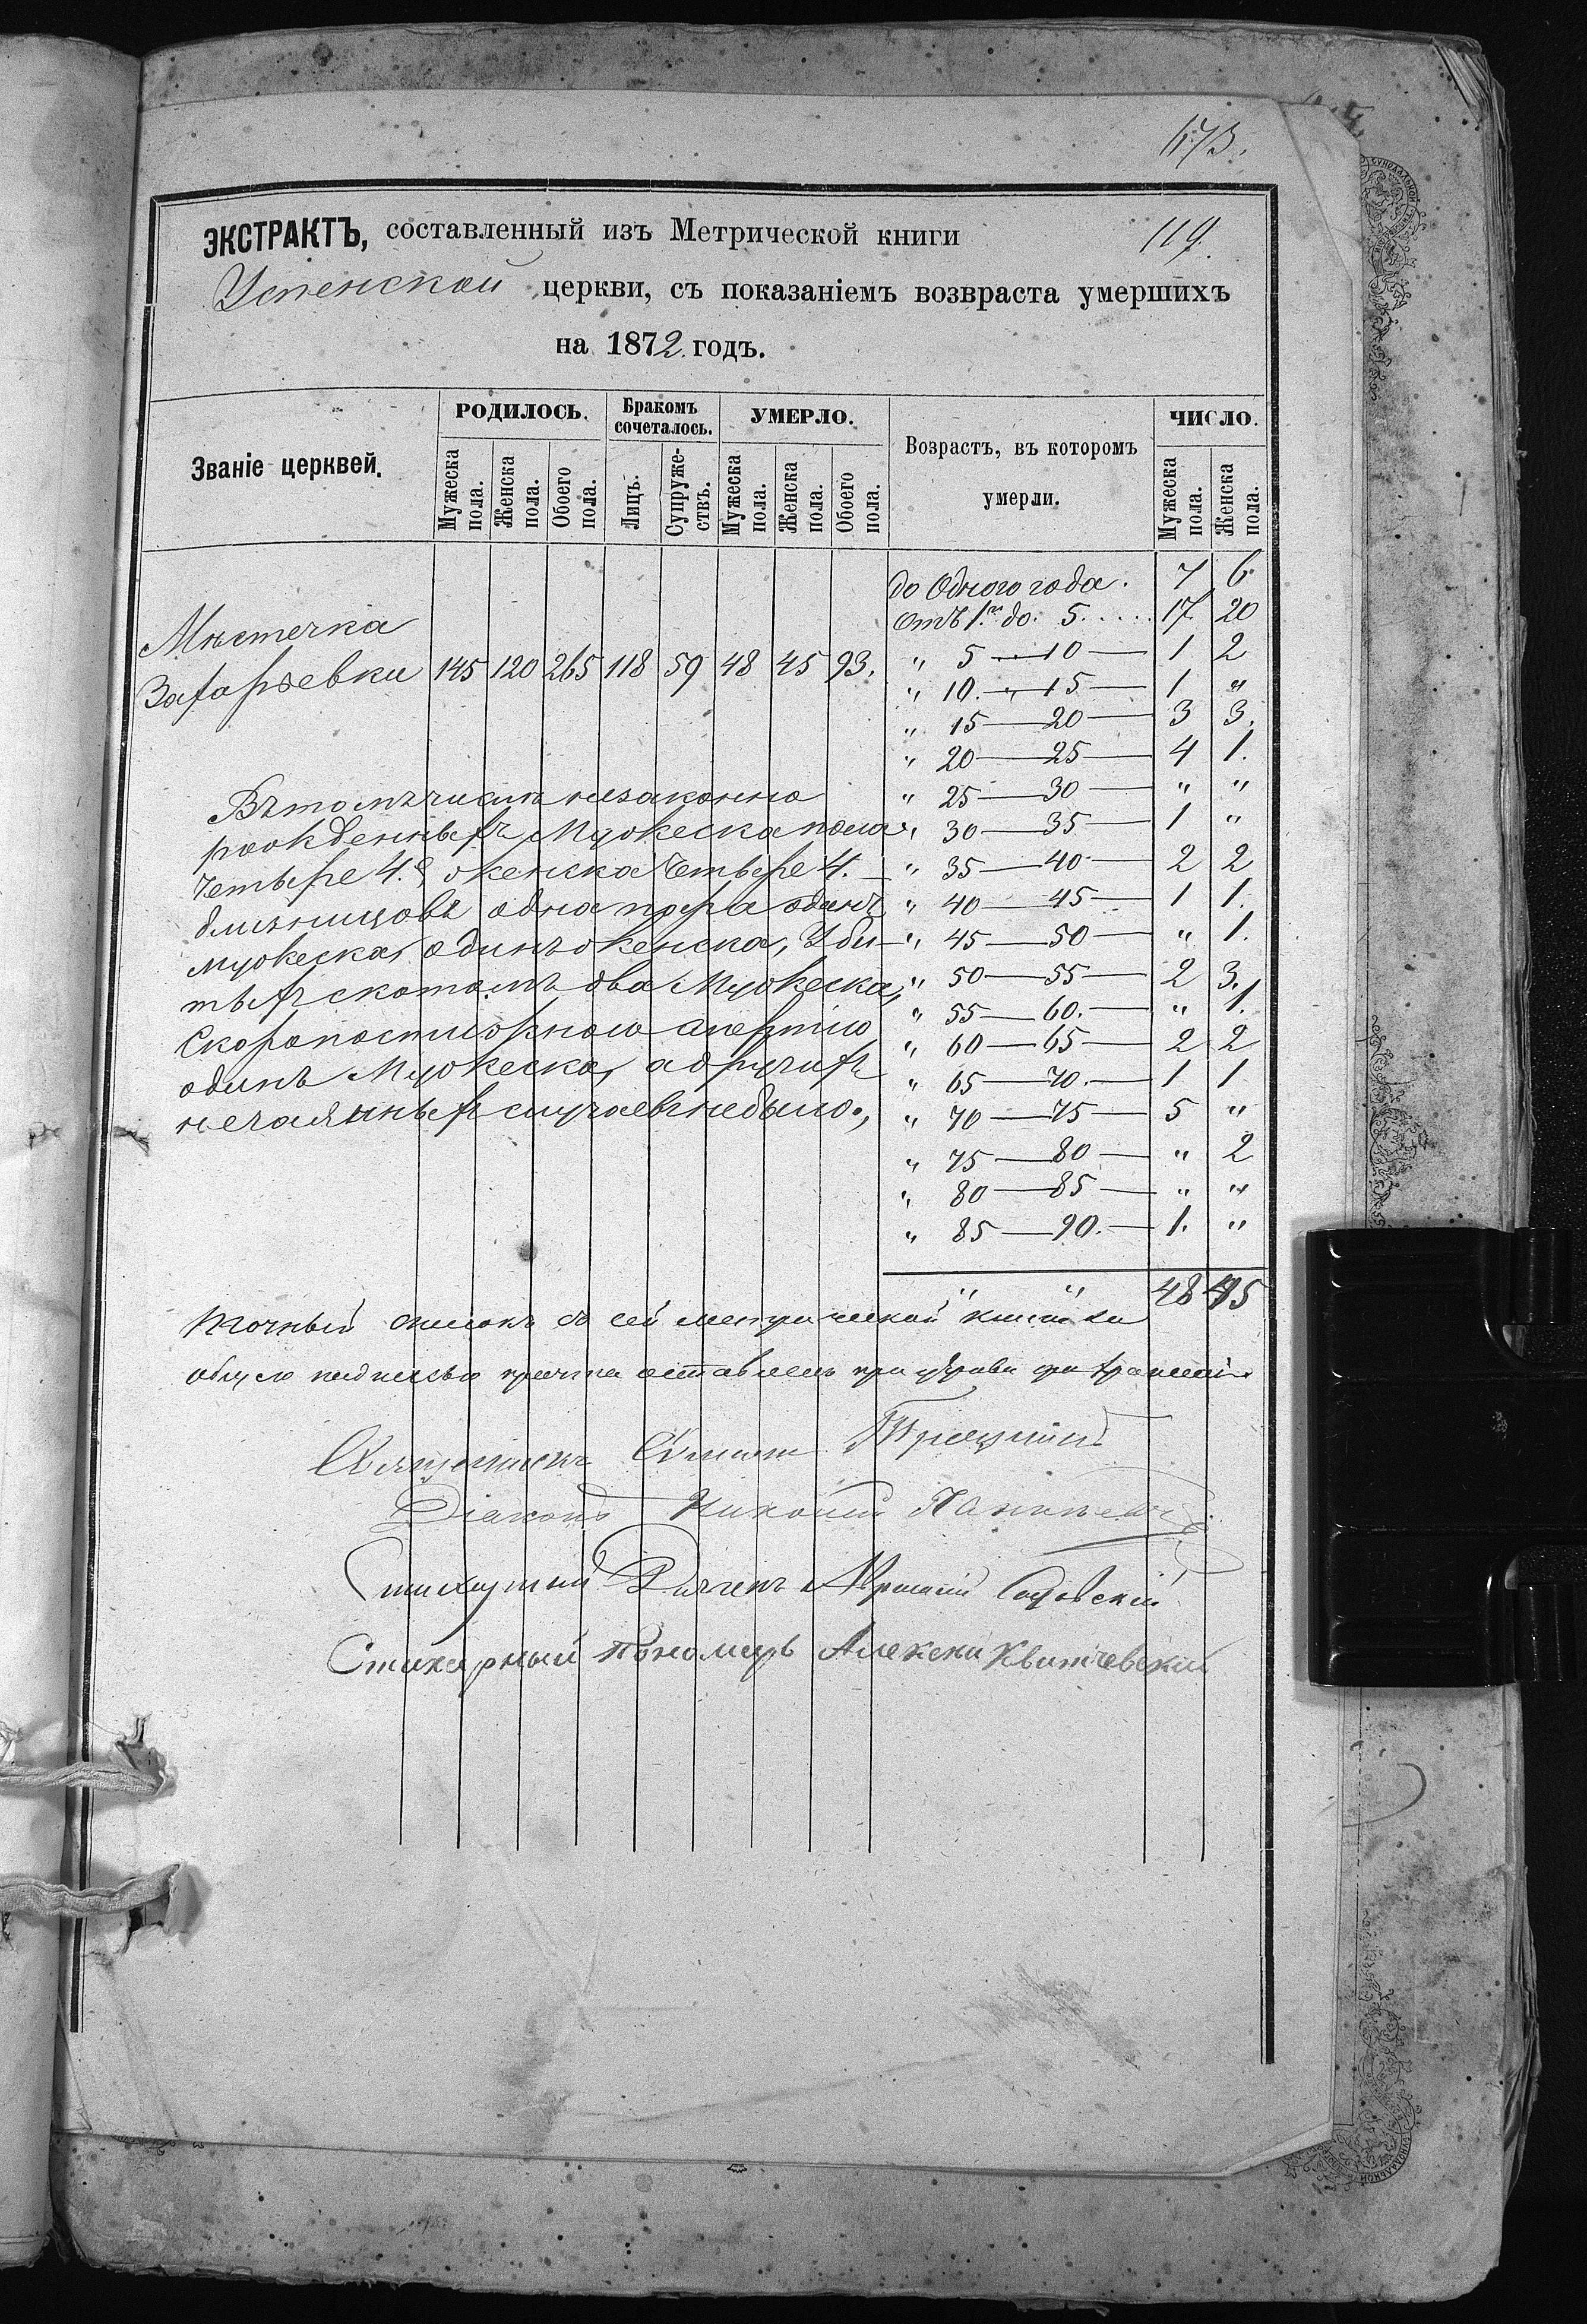 173.
119.
ЭКСТРАКТЪ, составленный изъ Метрической книги
Успенской церкви, съ показаніемъ возвраста умершихъ
на 1872 годъ.
Званіе церквей.
РОДИЛОСЬ.
Бракомъ сочеталось.
УМЕРЛО.
Возрастъ, въ которомъ умерли.
ЧИСЛО.
Мужеска пола.
Женска пола.
Обоего пола.
Лицъ.
Супружествъ.
Мужеска пола.
Женска пола.
Обоего пола.
Мужеска пола.
Женска пола.
Мѣстечка
Захарьевки 145 120 265 118 59 48 45 93.
до Одного года. 7 6
отъ 1го до. 5..... 17 20
„ 5 — 10 — 1 2
„ 10. „ 15 — 1 „
„ 15 — 20 — 3 3.
„ 20 — 25 — 4 1.
„ 25 — 30 — „ „
„ 30 — 35 — 1 „
„ 35 — 40 — 2 2
„ 40 — 45 — 1 1.
„ 45 — 50 — „ 1.
„ 50 — 55 — 2 3.
„ 55 — 60. — „ 1.
„ 60 — 65 — 2 2
„ 65 — 70. — 1 1
„ 70 — 75 — 5 „
„ 75 — 80 — „ 2
„ 80 — 85 — „ „
„ 85 — 90. — 1. „
„ „ 48 45
Въ томъ числѣ незаконно
рожденныхъ Мужеска пола
Четыре 4. женска Четыре 4.
близницовъ одна пара одинъ
мужеска, одинъ женска, Уби-
тыхъ скотомъ два Мужеска,
Скоропостижною смертію
одинъ Мужеска, а другихъ
нечаянныхъ случаевъ небыло.,
Точный списокъ съ сей метрической книги за
общею подписью причта оставленъ при церкви для храненія
Священникъ
Діаконъ
Стихарный Дьячекъ
Стихарный Пономарь Алексей Квитчевский